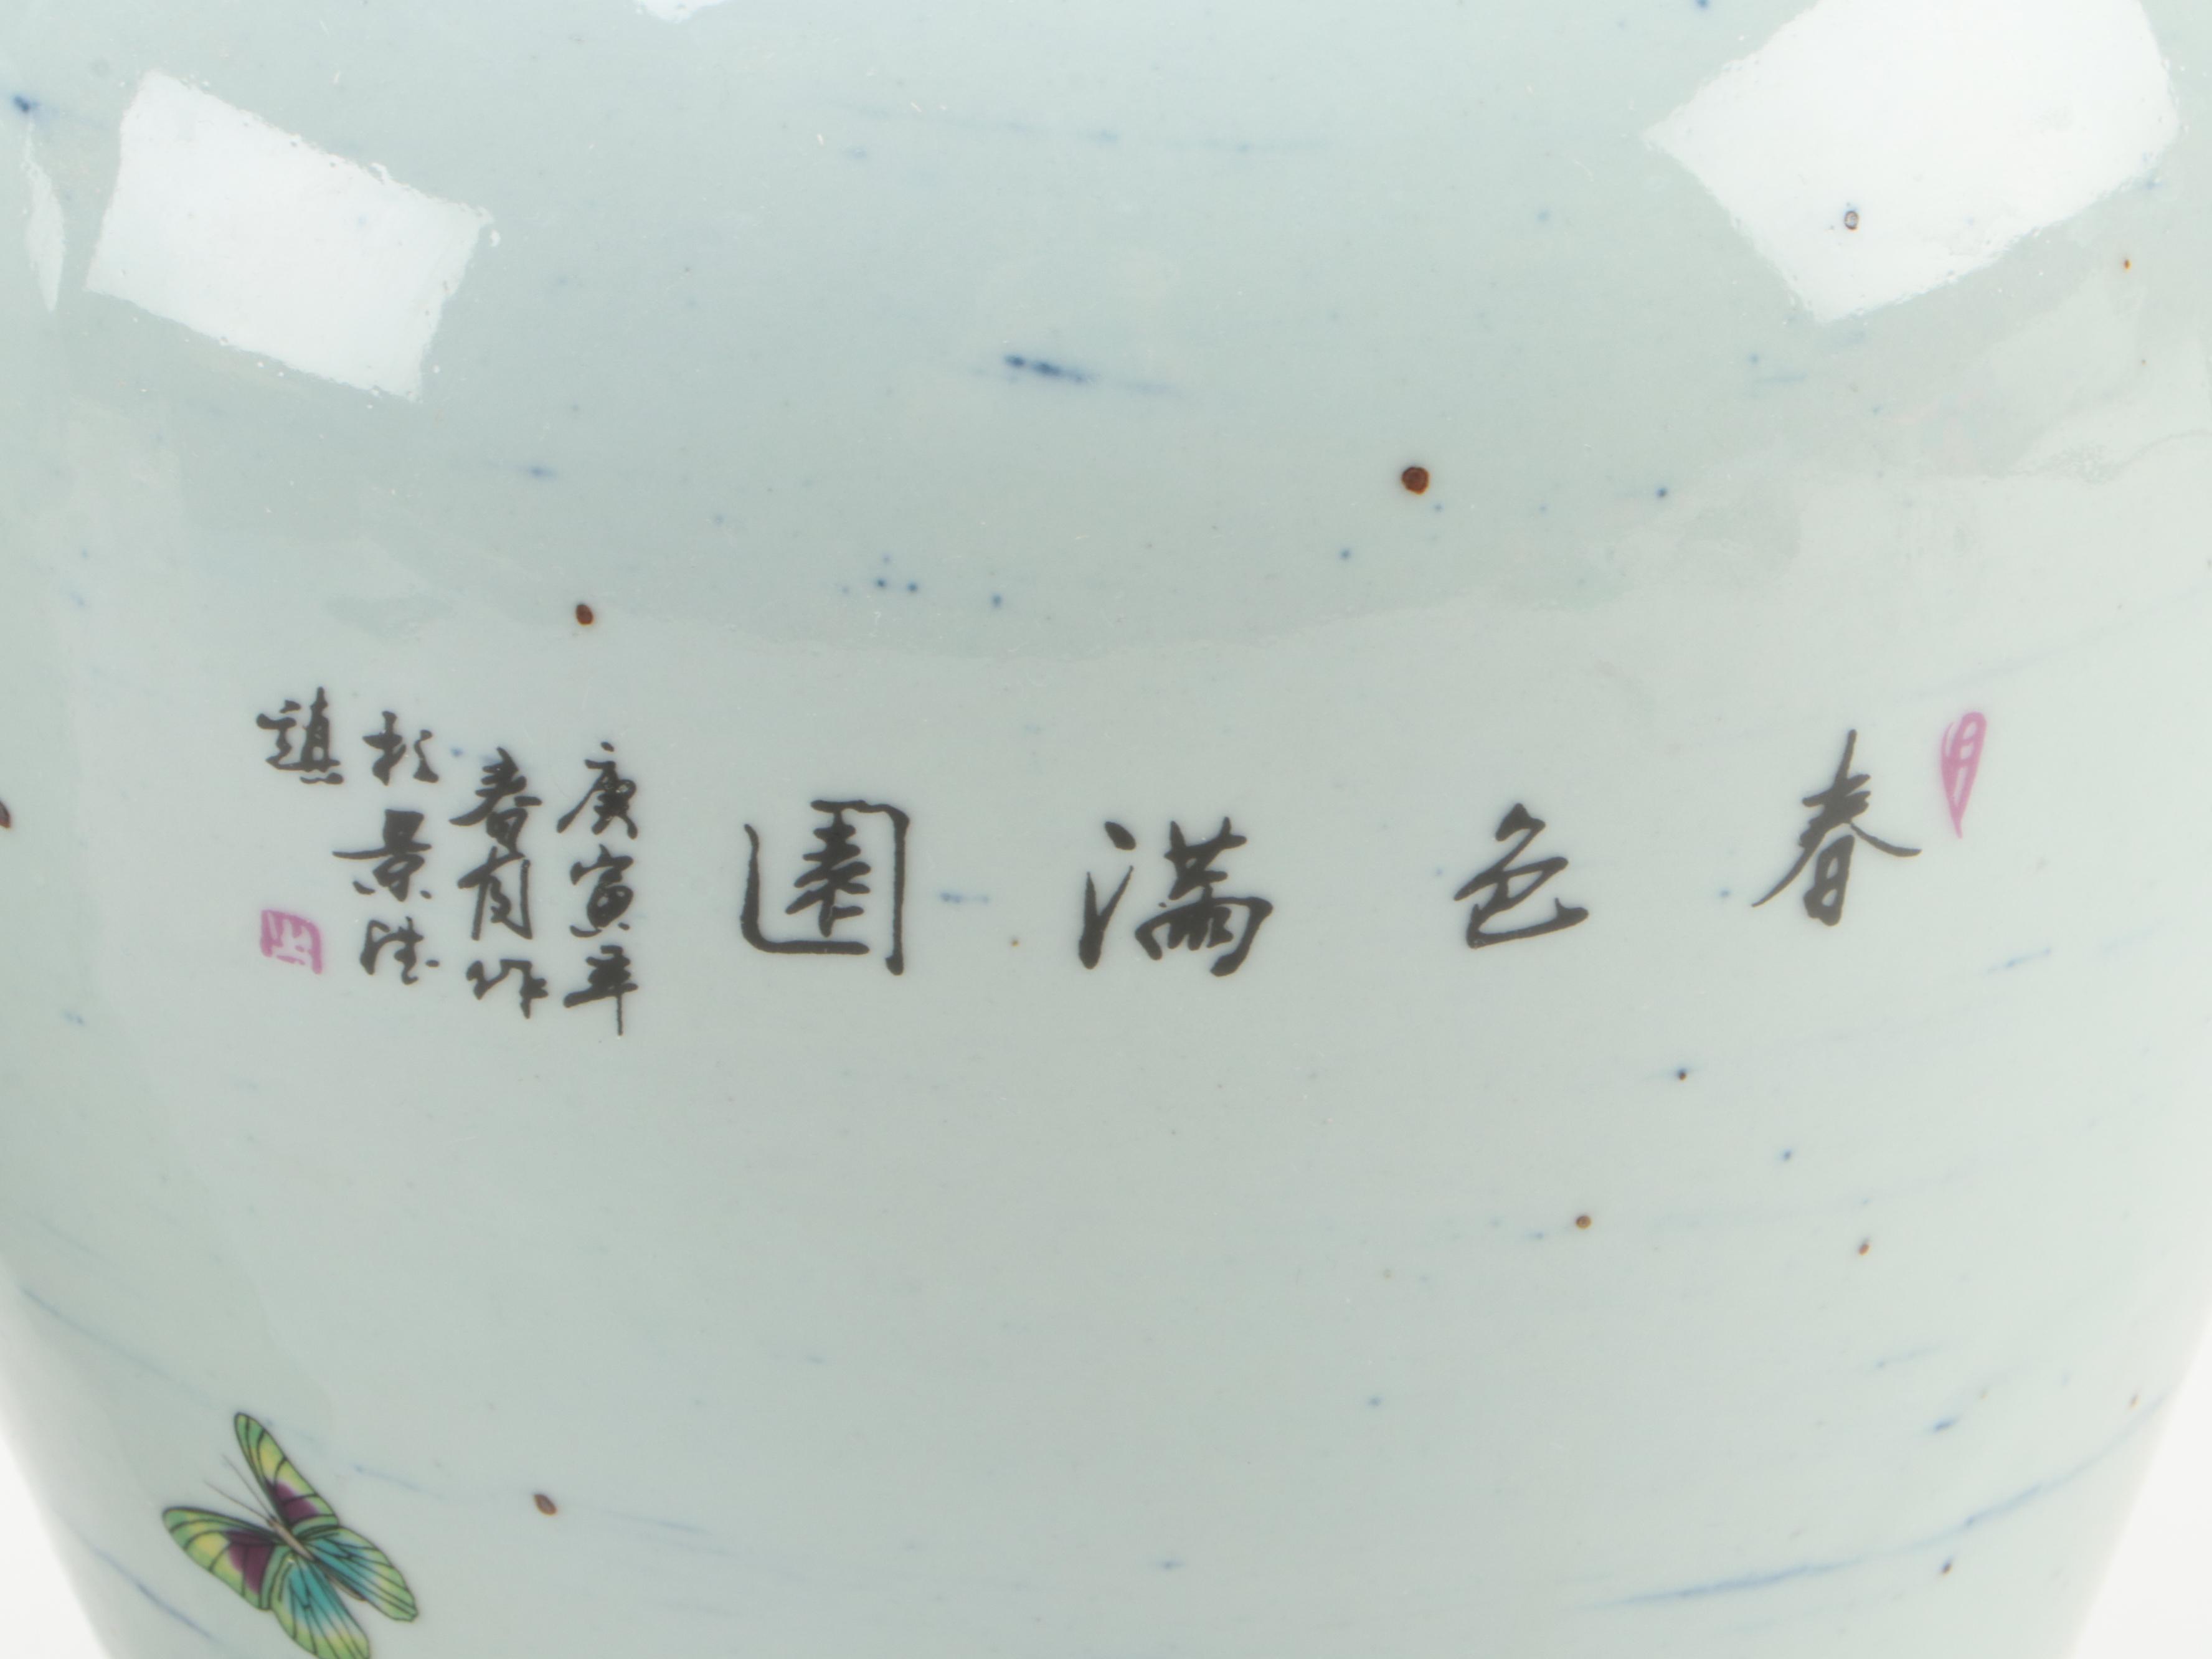 春色滿園
庚寅年
春月作
於景德
鎮